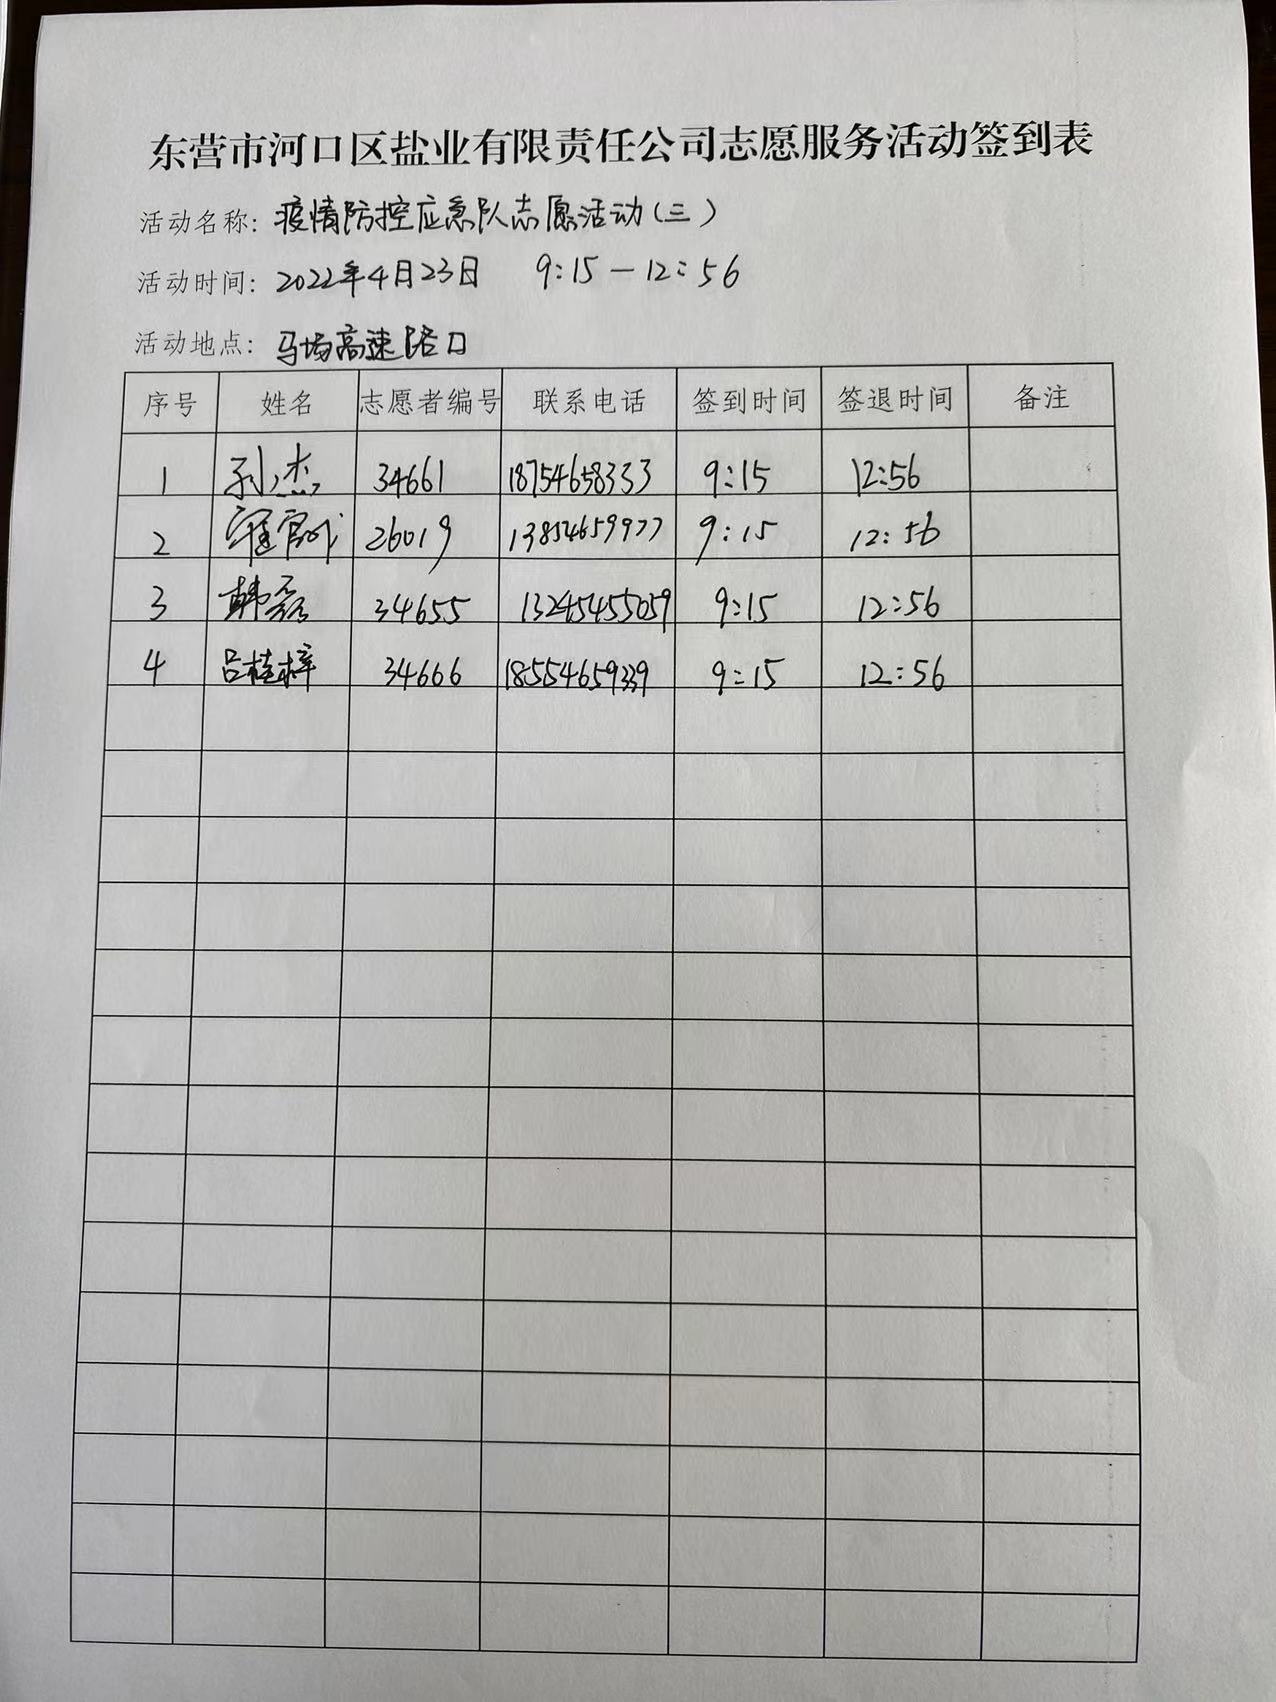 东营市河口区盐业有限责任公司志愿服务活动签到表
活动名称: 疫情防控应急队志愿活动(三)
活动时间: 2022年4月23日 9:15—12:56
活动地点: 马场高速路口
序号 姓名 志愿者编号 联系电话 签到时间 签退时间 备注
1 孙杰 34661 18754658333 9:15 12:56
2 26019 13854659977 9:15 12:56
3 韩磊 34655 13245455059 9:15 12:56
4 吕桂梓 34666 18554659339 9:15 12:56